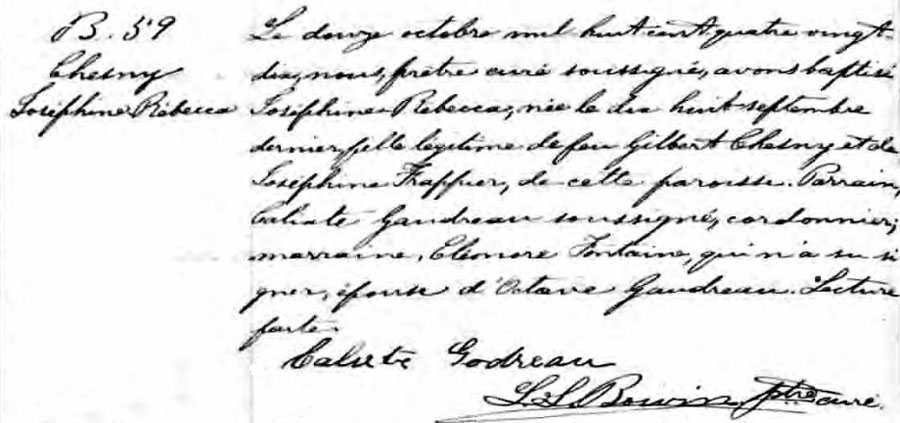 B. 59
Chesny
Joséphine Rébecca
Le douze octobre mil huit cent quatre vingt-
dix, nous, prêtre curé soussigné, avons baptisé
Joséphine Rébecca, née le dix huit septembre
dernier, fille légitime de feu Gilbert Chesny et de
Joséphine Frappier, de cette paroisse. Parrain,
Calixte Gaudreau soussigné, cordonnier;
marraine, Eléonore Fontaine, qui n'a su si
gner, épouse d'Octave Gaudreau. Lecture
faite.
Calixte Godreau
Ptre curé.